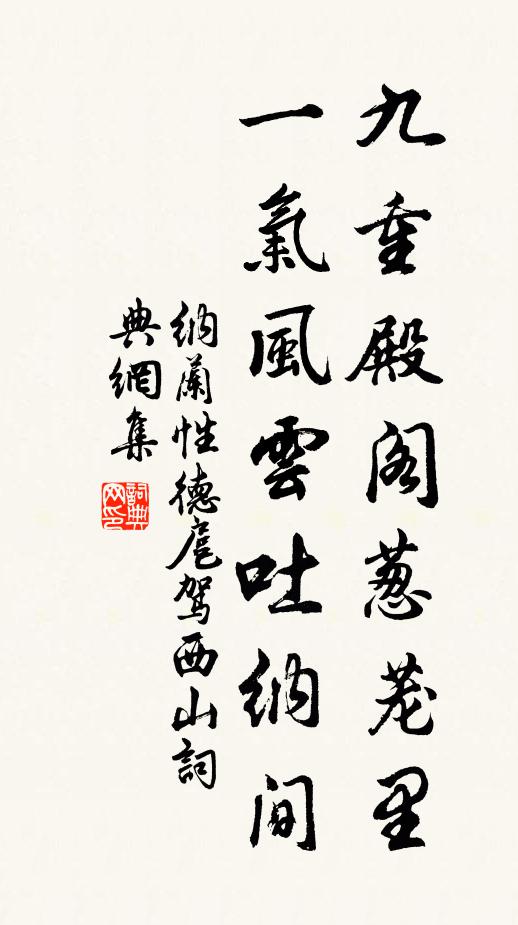 九重殿阁葱茏里
一氣風雲吐納間
納蘭性德扈駕西山詞
典網集
詞典網印